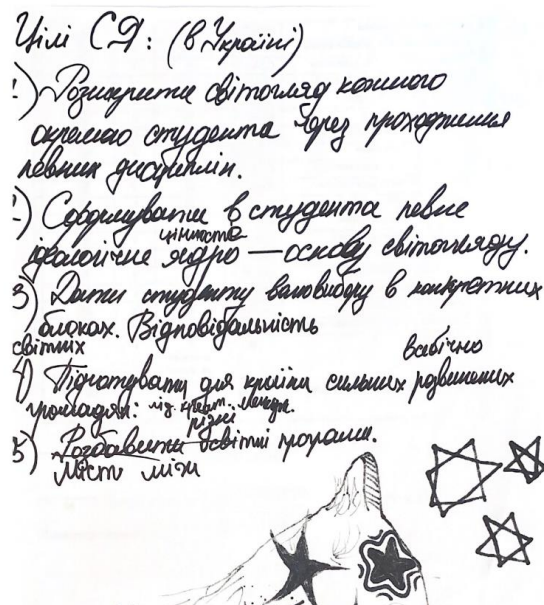 Цілі СД: (в Україні)
1) Розширити світогляд кожного
окремого студента через проходження
певних дисциплін.
2) Сформувати в студента певне
ціннісно
ідеологічне ядро — основу світогляду.
3) Дати студенту волю вибору в конкретних
блоках. Відповідальність
освітніх всебічно
4) Підготувати для країни сильних розвинених
громадян: лід. креат.
різні
5) Розбавити освітні програми.
Міст між